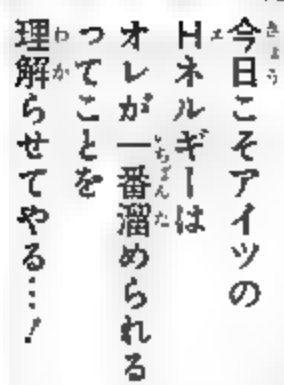 今日こそアイツの
Hネルギーは
オレが一番溜められる
ってことを
理解らせてやる…！